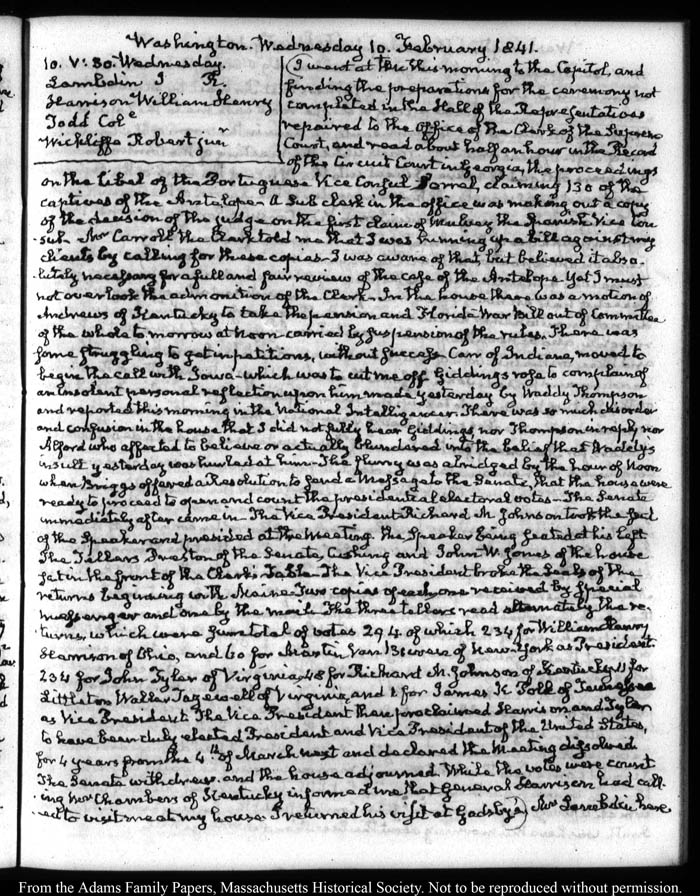 Washington. Wednesday 10. February 1841.
10. V: 30. Wednesday.
Lambdin J R.
Harrison William Henry
Todd Col.e
Wickliffe Robert junr
I went at this morning to the Capitol, and
finding the preparations for the ceremony not
completed in the Hall of the Representatives
repaired to the Office of the Clerk of the Supreme
Court, and read about half an hour in the Record
of the Circuit Court in Georgia, the proceedings
on the libel of the Portuguese Vice Consul Sorral, claiming 130 of the
captives of the Antelope. A sub clerk in the office was making out a copy
of the decision of the judge on the first claim of Mulvey the Spanish Vice Con
sul. Mr Carroll the Clerk told me that I was running up a bill against my
clients by calling for these copies. I was aware of that, but believed it abso.
lutely necessary for a full and fair review of the case of the Antelope. Yet I must
not overlook the admonition of the Clerk. In the house there was a motion of
Andrews of Kentucky to take the pension and Florida War Bill out of Committee
of the whole to morrow at Noon. carried by suspension of the rules. There was
some struggling to get in petitions, without success. Carr of Indiana, moved to
begin the call with Iowa. which was to cut me off. Giddings rose to complain of
an insolent personal reflection upon him made yesterday by Waddy Thompson
and reported this morning in the National Intelligencer. There was so much disorder
and confusion in the house that I did not fully hear Giddings, nor Thompson in reply nor
Alford who affected to believe or actually blundered into the belief that Waddy's
insult yesterday was hurled at him. The flurry was abridged by the hour of Noon
when Briggs offered a Resolution to send a Message to the Senate, that the house were
ready to proceed to open and count the presidential electoral votes. The Senate
immediately after came in. The Vice President Richard M. Johnson took the seat
of the Speaker and presided at the Meeting. the Speaker being seated at his left
The Tellers Preston of the Senate, Cushing and John W. Jones of the house
sat in the front of the Clerk's Table. The Vice President broke the Seals of the
returns beginning with Maine. Two copies of each one received by special
messenger and one by the mail. The three tellers read alternately the re.
turns, which were sum total of votes 294. of which 234 for William Henry
Harrison of Ohio, and 60 for Martin Van Buren of New-York as President.
234 for John Tyler of Virginia, 48 for Richard M. Johnson of Kentucky, 11 for
Littleton Waller Tazewell of Virginia, and 1 for James K Polk of Tennessee
as Vice President. The Vice President then proclaimed Harrison and Tyler
to have been duly elected President and Vice President of the United States,
for 4 years from the 4th of March next and declared the Meeting dissolved
The Senate withdrew. and the house adjourned. While the votes were count
ing Mr Chambers of Kentucky informed me that General Harrison had call.
ed to visit me at my house. I returned his visit at Gadsby's. Mr Lambdin here
From the Adams Family Papers, Massachusetts Historical Society. Not to be reproduced without permission